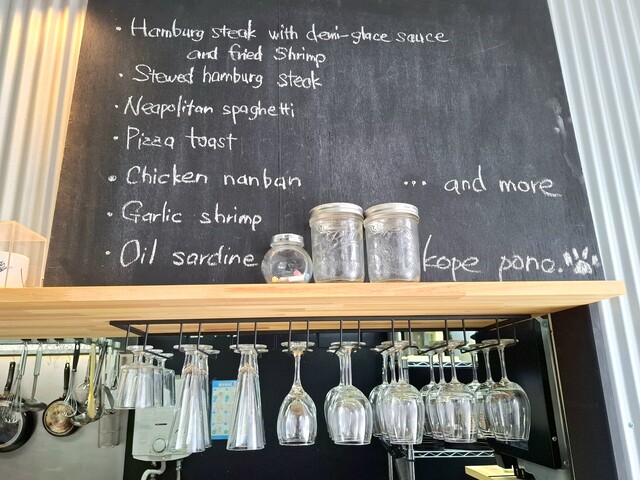 · Hamburg steak with demi-glace sauce
and fried Shrimp
· Stewed hamburg steak
· Neapolitan spaghetti
· Pizza toast
· Chicken nanban
... and more
· Garlic shrimp
· Oil sardine
kope pono.